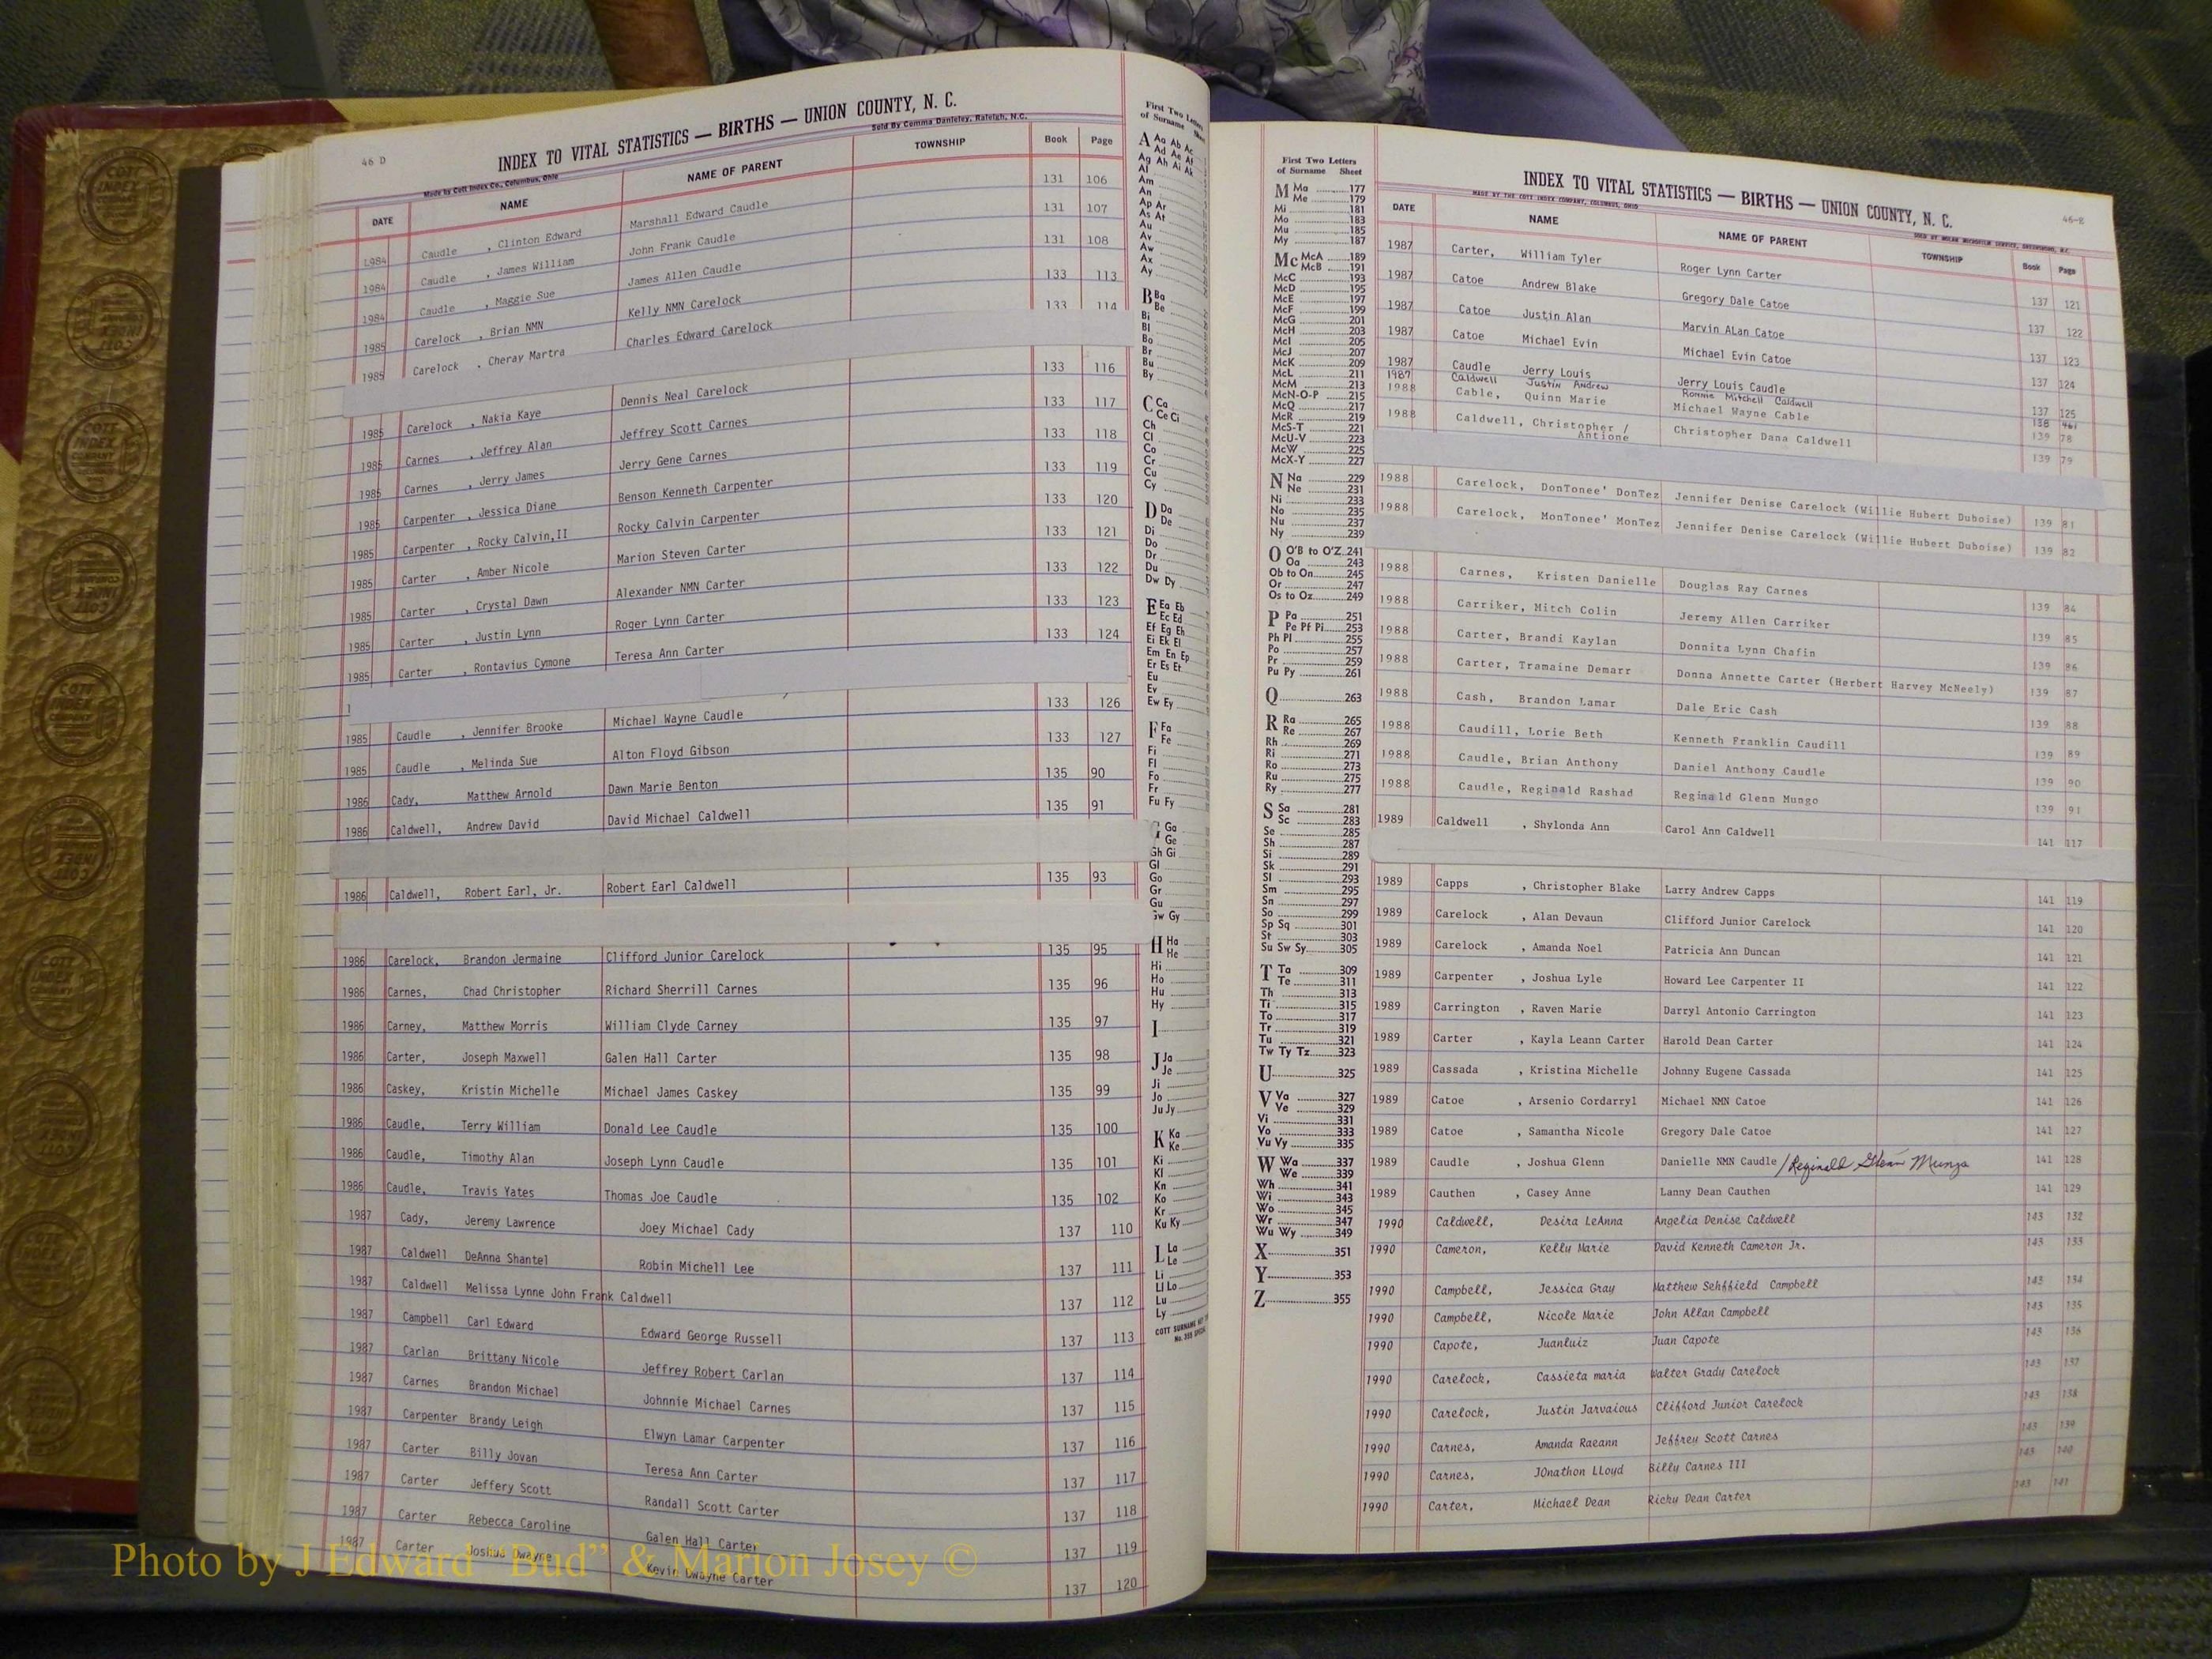 46 D
INDEX TO VITAL STATISTICS — BIRTHS — UNION COUNTY, N. C.
Made by Cott Index Co., Columbus, Ohio
Sold By Comma Danieley, Raleigh, N.C.
DATE NAME NAME OF PARENT TOWNSHIP Book Page
1984 Caudle , Clinton Edward Marshall Edward Caudle 131 106
1984 Caudle , James William John Frank Caudle 131 107
1984 Caudle , Maggie Sue James Allen Caudle 131 108
1985 Carelock , Brian NMN Kelly NMN Carelock 133 113
1985 Carelock , Cheray Martra Charles Edward Carelock 133 114
1985 Carelock , Nakia Kaye Dennis Neal Carelock 133 116
1985 Carnes , Jeffrey Alan Jeffrey Scott Carnes 133 117
1985 Carnes , Jerry James Jerry Gene Carnes 133 118
1985 Carpenter , Jessica Diane Benson Kenneth Carpenter 133 119
1985 Carpenter , Rocky Calvin,II Rocky Calvin Carpenter 133 120
1985 Carter , Amber Nicole Marion Steven Carter 133 121
1985 Carter , Crystal Dawn Alexander NMN Carter 133 122
1985 Carter , Justin Lynn Roger Lynn Carter 133 123
1985 Carter , Rontavius Cymone Teresa Ann Carter 133 124
1985 Caudle , Jennifer Brooke Michael Wayne Caudle 133 126
1985 Caudle , Melinda Sue Alton Floyd Gibson 133 127
1986 Cady, Matthew Arnold Dawn Marie Benton 135 90
1986 Caldwell, Andrew David David Michael Caldwell 135 91
1986 Caldwell, Robert Earl, Jr. Robert Earl Caldwell 135 93
1986 Carelock, Brandon Jermaine Clifford Junior Carelock 135 95
1986 Carnes, Chad Christopher Richard Sherrill Carnes 135 96
1986 Carney, Matthew Morris William Clyde Carney 135 97
1986 Carter, Joseph Maxwell Galen Hall Carter 135 98
1986 Caskey, Kristin Michelle Michael James Caskey 135 99
1986 Caudle, Terry William Donald Lee Caudle 135 100
1986 Caudle, Timothy Alan Joseph Lynn Caudle 135 101
1986 Caudle, Travis Yates Thomas Joe Caudle 135 102
1987 Cady, Jeremy Lawrence Joey Michael Cady 137 110
1987 Caldwell DeAnna Shantel Robin Michell Lee 137 111
1987 Caldwell Melissa Lynne John Frank Caldwell 137 112
1987 Campbell Carl Edward Edward George Russell 137 113
1987 Carlan Brittany Nicole Jeffrey Robert Carlan 137 114
1987 Carnes Brandon Michael Johnnie Michael Carnes 137 115
1987 Carpenter Brandy Leigh Elwyn Lamar Carpenter 137 116
1987 Carter Billy Jovan Teresa Ann Carter 137 117
1987 Carter Jeffery Scott Randall Scott Carter 137 118
1987 Carter Rebecca Caroline Galen Hall Carter 137 119
1987 Carter Joshua Dwayne Kevin Dwayne Carter 137 120
First Two Letters
of Surname
A Aa Ab Ac
Ad Ae Af
Ag Ah Ai Ak
Al
Am
An
Ap Ar
As At
Au
Av
Aw
Ax
Ay
B Ba
Be
Bi
Bl
Bo
Br
Bu
By
C Ca
Ce Ci
Ch
Cl
Co
Cr
Cu
Cy
D Da
De
Di
Do
Dr
Du
Dw Dy
E Ea Eb
Ec Ed
Ef Eg Eh
Ei Ek El
Em En Ep
Er Es Et
Eu
Ev
Ew Ey
F Fa
Fe
Fi
Fl
Fo
Fr
Fu Fy
G Ga
Ge
Gh Gi
Gl
Go
Gr
Gu
Gw Gy
H Ha
He
Hi
Ho
Hu
Hy
I
J Ja
Je
Ji
Jo
Ju Jy
K Ka
Ke
Ki
Kl
Kn
Ko
Kr
Ku Ky
L La
Le
Li
Ll Lo
Lu
Ly
First Two Letters
of Surname Sheet
M Ma 177
Me 179
Mi 181
Mo 183
Mu 185
My 187
Mc McA 189
McB 191
McC 193
McD 195
McE 197
McF 199
McG 201
McH 203
McI 205
McJ 207
McK 209
McL 211
McM 213
McN-O-P 215
McQ 217
McR 219
McS-T 221
McU-V 223
McW 225
McX-Y 227
N Na 229
Ne 231
Ni 233
No 235
Nu 237
Ny 239
O O'B to O'Z 241
Oa 243
Ob to On 245
Or 247
Os to Oz 249
P Pa 251
Pe Pf Pi 253
Ph Pl 255
Po 257
Pr 259
Pu Py 261
Q 263
R Ra 265
Re 267
Rh 269
Ri 271
Ro 273
Ru 275
Ry 277
S Sa 281
Sc 283
Se 285
Sh 287
Si 289
Sk 291
Sl 293
Sm 295
Sn 297
So 299
Sp Sq 301
St 303
Su Sw Sy 305
T Ta 309
Te 311
Th 313
Ti 315
To 317
Tr 319
Tu 321
Tw Ty Tz 323
U 325
V Va 327
Ve 329
Vi 331
Vo 333
Vu Vy 335
W Wa 337
We 339
Wh 341
Wi 343
Wo 345
Wr 347
Wu Wy 349
X 351
Y 353
Z 355
INDEX TO VITAL STATISTICS — BIRTHS — UNION COUNTY, N. C.
46-E
MADE BY THE COTT INDEX COMPANY, COLUMBUS, OHIO
DATE NAME NAME OF PARENT TOWNSHIP Book Page
1987 Carter, William Tyler Roger Lynn Carter 137 121
1987 Catoe Andrew Blake Gregory Dale Catoe 137 122
1987 Catoe Justin Alan Marvin ALan Catoe 137 123
1987 Catoe Michael Evin Michael Evin Catoe 137 124
1987 Caudle Jerry Louis Jerry Louis Caudle 137 125
1987 Caldwell Justin Andrew Ronnie Mitchell Caldwell 138 461
1988 Cable, Quinn Marie Michael Wayne Cable 139 78
1988 Caldwell, Christopher / Antione Christopher Dana Caldwell 139 79
1988 Carelock, DonTonee' DonTez Jennifer Denise Carelock (Willie Hubert Duboise) 139 81
1988 Carelock, MonTonee' MonTez Jennifer Denise Carelock (Willie Hubert Duboise) 139 82
1988 Carnes, Kristen Danielle Douglas Ray Carnes 139 84
1988 Carriker, Mitch Colin Jeremy Allen Carriker 139 85
1988 Carter, Brandi Kaylan Donnita Lynn Chafin 139 86
1988 Carter, Tramaine Demarr Donna Annette Carter (Herbert Harvey McNeely) 139 87
1988 Cash, Brandon Lamar Dale Eric Cash 139 88
1988 Caudill, Lorie Beth Kenneth Franklin Caudill 139 89
1988 Caudle, Brian Anthony Daniel Anthony Caudle 139 90
1988 Caudle, Reginald Rashad Reginald Glenn Mungo 139 91
1989 Caldwell , Shylonda Ann Carol Ann Caldwell 141 117
1989 Capps , Christopher Blake Larry Andrew Capps 141 119
1989 Carelock , Alan Devaun Clifford Junior Carelock 141 120
1989 Carelock , Amanda Noel Patricia Ann Duncan 141 121
1989 Carpenter , Joshua Lyle Howard Lee Carpenter II 141 122
1989 Carrington , Raven Marie Darryl Antonio Carrington 141 123
1989 Carter , Kayla Leann Carter Harold Dean Carter 141 124
1989 Cassada , Kristina Michelle Johnny Eugene Cassada 141 125
1989 Catoe , Arsenio Cordarryl Michael NMN Catoe 141 126
1989 Catoe , Samantha Nicole Gregory Dale Catoe 141 127
1989 Caudle , Joshua Glenn Danielle NMN Caudle / Reginald Glenn Mungo 141 128
1989 Cauthen , Casey Anne Lanny Dean Cauthen 141 129
1990 Caldwell, Desira LeAnna Angelia Denise Caldwell 143 132
1990 Cameron, Kelly Marie David Kenneth Cameron Jr. 143 133
1990 Campbell, Jessica Gray Matthew Sehffield Campbell 143 134
1990 Campbell, Nicole Marie John Allan Campbell 143 135
1990 Capote, Juanluiz Juan Capote 143 136
1990 Carelock, Cassieta maria Walter Grady Carelock 143 137
1990 Carelock, Justin Jarvaious Clifford Junior Carelock 143 138
1990 Carnes, Amanda Raeann Jeffrey Scott Carnes 143 139
1990 Carnes, JOnathon LLoyd Billy Carnes III 143 140
1990 Carter, Michael Dean Ricky Dean Carter 143 141
Photo by J Edward “Bud” & Marion Josey ©